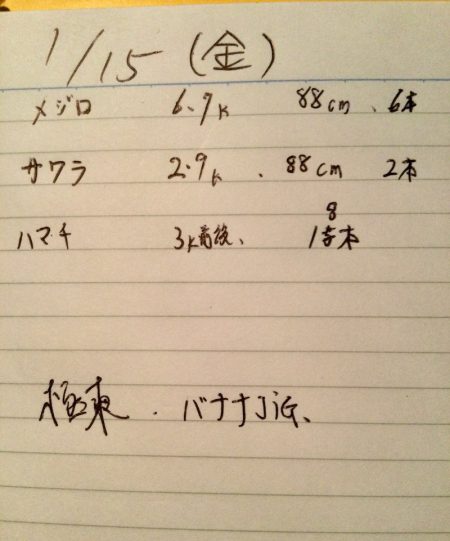 1/15 (金)
メジロ 6.7K 88cm、6本
サワラ 2.9K、88cm 2本
ハマチ 3K前後、
8
1本
極東. バナナ